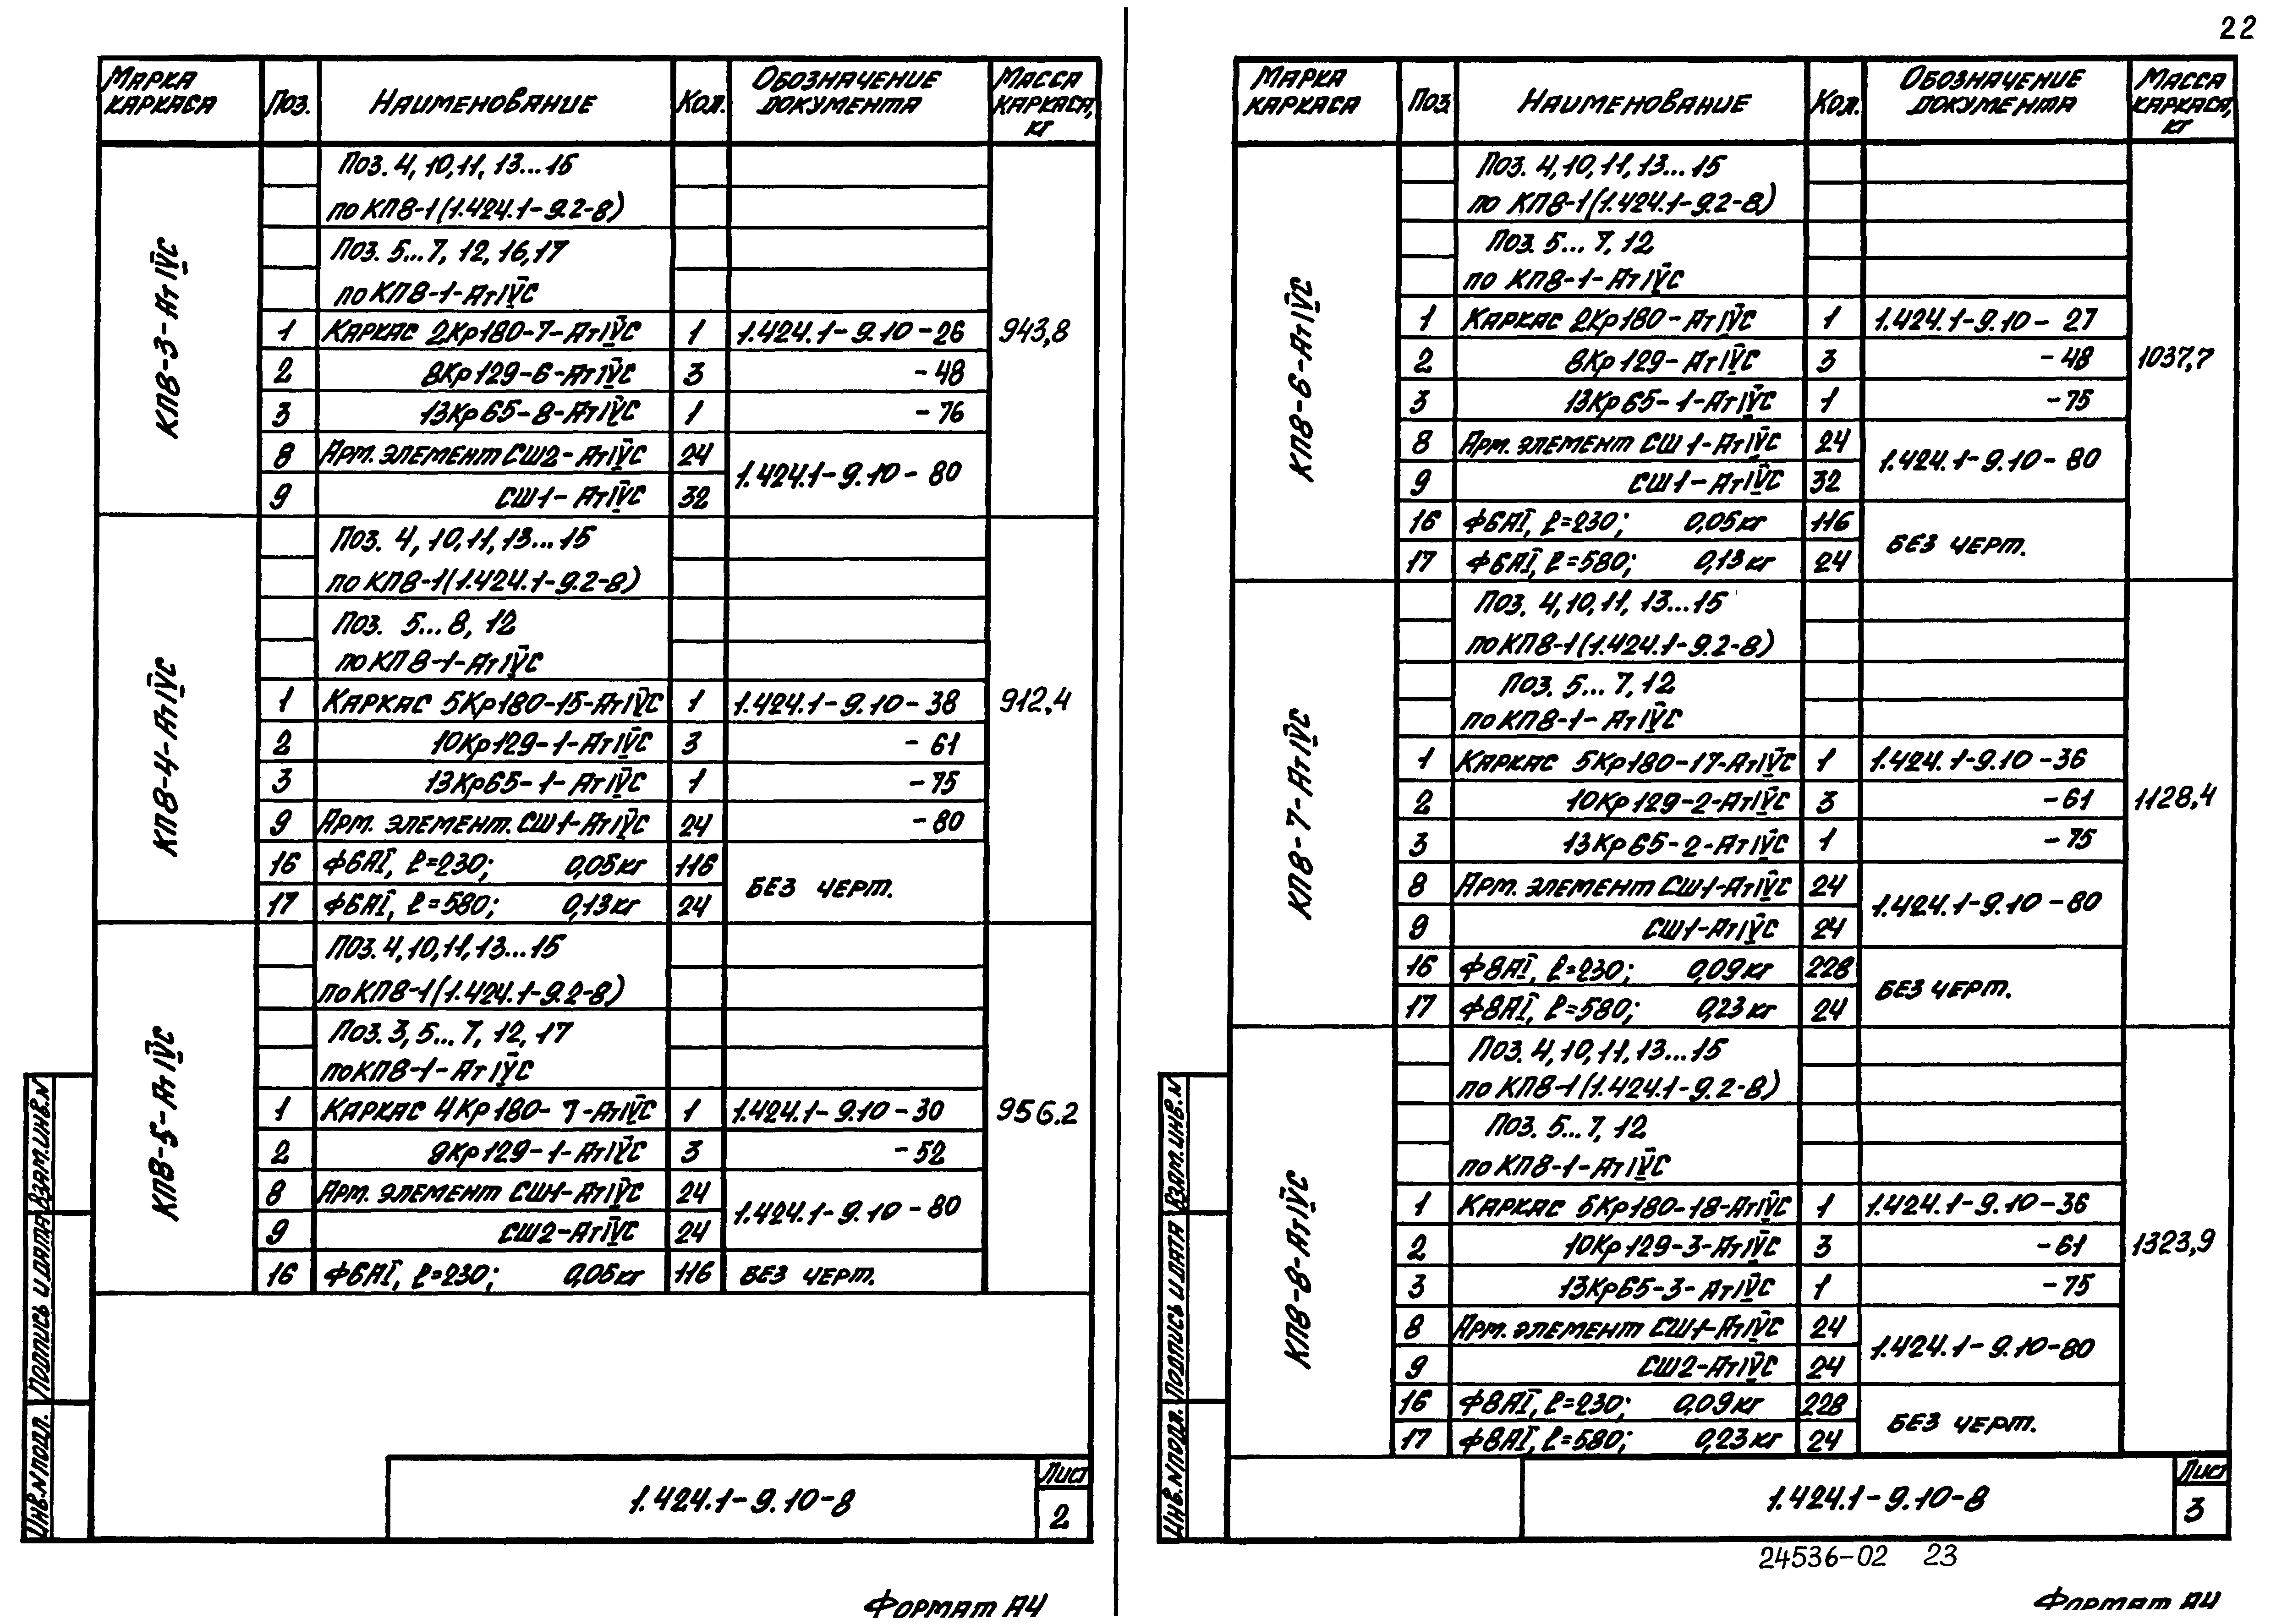 22
Марка каркаса | Поз. | Наименование | Кол. | Обозначение документа | Масса каркаса, кг
КП8-3-АтIVС | 943,8
Поз. 4, 10, 11, 13...15
по КП8-1(1.424.1-9.2-8)
Поз. 5...7, 12, 16, 17
по КП8-1-АтIVС
1 | Каркас 2Кр180-7-АтIVС | 1 | 1.424.1-9.10-26
2 | 8Кр129-6-АтIVС | 3 | -48
3 | 13Кр65-8-АтIVС | 1 | -76
8 | Арм. элемент СШ2-АтIVС | 24 | 1.424.1-9.10-80
9 | СШ1-АтIVС | 32
КП8-4-АтIVС | 912,4
Поз. 4, 10, 11, 13...15
по КП8-1(1.424.1-9.2-8)
Поз. 5...8, 12
по КП8-1-АтIVС
1 | Каркас 5Кр180-15-АтIVС | 1 | 1.424.1-9.10-38
2 | 10Кр129-1-АтIVС | 3 | -61
3 | 13Кр65-1-АтIVС | 1 | -75
9 | Арм. элемент. СШ1-АтIVС | 24 | -80
16 | Ф6АI, ℓ=230; 0,05кг | 116 | Без черт.
17 | Ф6АI, ℓ=580; 0,13кг | 24
КП8-5-АтIVС | 956.2
Поз. 4, 10, 11, 13...15
по КП8-1(1.424.1-9.2-8)
Поз. 3, 5...7, 12, 17
по КП8-1-АтIVС
1 | Каркас 4Кр180-7-АтIVС | 1 | 1.424.1-9.10-30
2 | 9Кр129-1-АтIVС | 3 | -52
8 | Арм. элемент СШ1-АтIVС | 24 | 1.424.1-9.10-80
9 | СШ2-АтIVС | 24
16 | Ф6АI, ℓ=230; 0,05кг | 116 | Без черт.
Взам.инв.N
Подпись и дата
Инв.N подл.
1.424.1-9.10-8
Лист
2
Формат А4
Марка каркаса | Поз | Наименование | Кол. | Обозначение документа | Масса каркаса, кг
КП8-6-АтIVС | 1037,7
Поз. 4, 10, 11, 13...15
по КП8-1(1.424.1-9.2-8)
Поз. 5...7, 12
по КП8-1-АтIVС
1 | Каркас 2Кр180-АтIVС | 1 | 1.424.1-9.10-27
2 | 8Кр129-АтIVС | 3 | -48
3 | 13Кр65-1-АтIVС | 1 | -75
8 | Арм. элемент СШ1-АтIVС | 24 | 1.424.1-9.10-80
9 | СШ1-АтIVС | 32
16 | Ф6АI, ℓ=230; 0,05кг | 116 | Без черт.
17 | Ф6АI, ℓ=580; 0,13кг | 24
КП8-7-АтIVС | 1128,4
Поз. 4, 10, 11, 13...15
по КП8-1(1.424.1-9.2-8)
Поз. 5...7, 12
по КП8-1-АтIVС
1 | Каркас 5Кр180-17-АтIVС | 1 | 1.424.1-9.10-36
2 | 10Кр129-2-АтIVС | 3 | -61
3 | 13Кр65-2-АтIVС | 1 | -75
8 | Арм. элемент СШ1-АтIVС | 24 | 1.424.1-9.10-80
9 | СШ1-АтIVС | 24
16 | Ф8АI, ℓ=230; 0,09кг | 228 | Без черт.
17 | Ф8АI, ℓ=580; 0,23кг | 24
КП8-8-АтIVС | 1323,9
Поз. 4, 10, 11, 13...15
по КП8-1(1.424.1-9.2-8)
Поз. 5...7, 12
по КП8-1-АтIVС
1 | Каркас 5Кр180-18-АтIVС | 1 | 1.424.1-9.10-36
2 | 10Кр129-3-АтIVС | 3 | -61
3 | 13Кр65-3-АтIVС | 1 | -75
8 | Арм. элемент СШ1-АтIVС | 24 | 1.424.1-9.10-80
9 | СШ2-АтIVС | 24
16 | Ф8АI, ℓ=230; 0,09кг | 228 | Без черт.
17 | Ф8АI, ℓ=580; 0,23кг | 24
Взам.инв.N
Подпись и дата
Инв.N подл.
1.424.1-9.10-8
Лист
3
24536-02 23
Формат А4